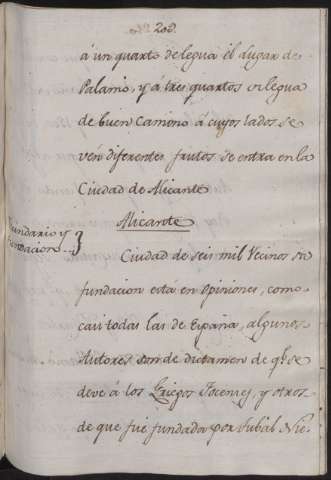 208.
á un quarto de legua él Lugar de
Palamo, y á tres quartos de legua
de buen Camino á cuyos lados se
ven diferentes frutos se entra en la
Ciudad de Alicante
Alicante
Vecindario y
Fundacion
Ciudad de seis mil Vecinos su
fundacion está en Opiniones, como
casi todas las de España, algunos
Autores son de dictamen de q.e se
deve á los Griegos Focenses, y otros
de que fue fundada por Tubál Nie-